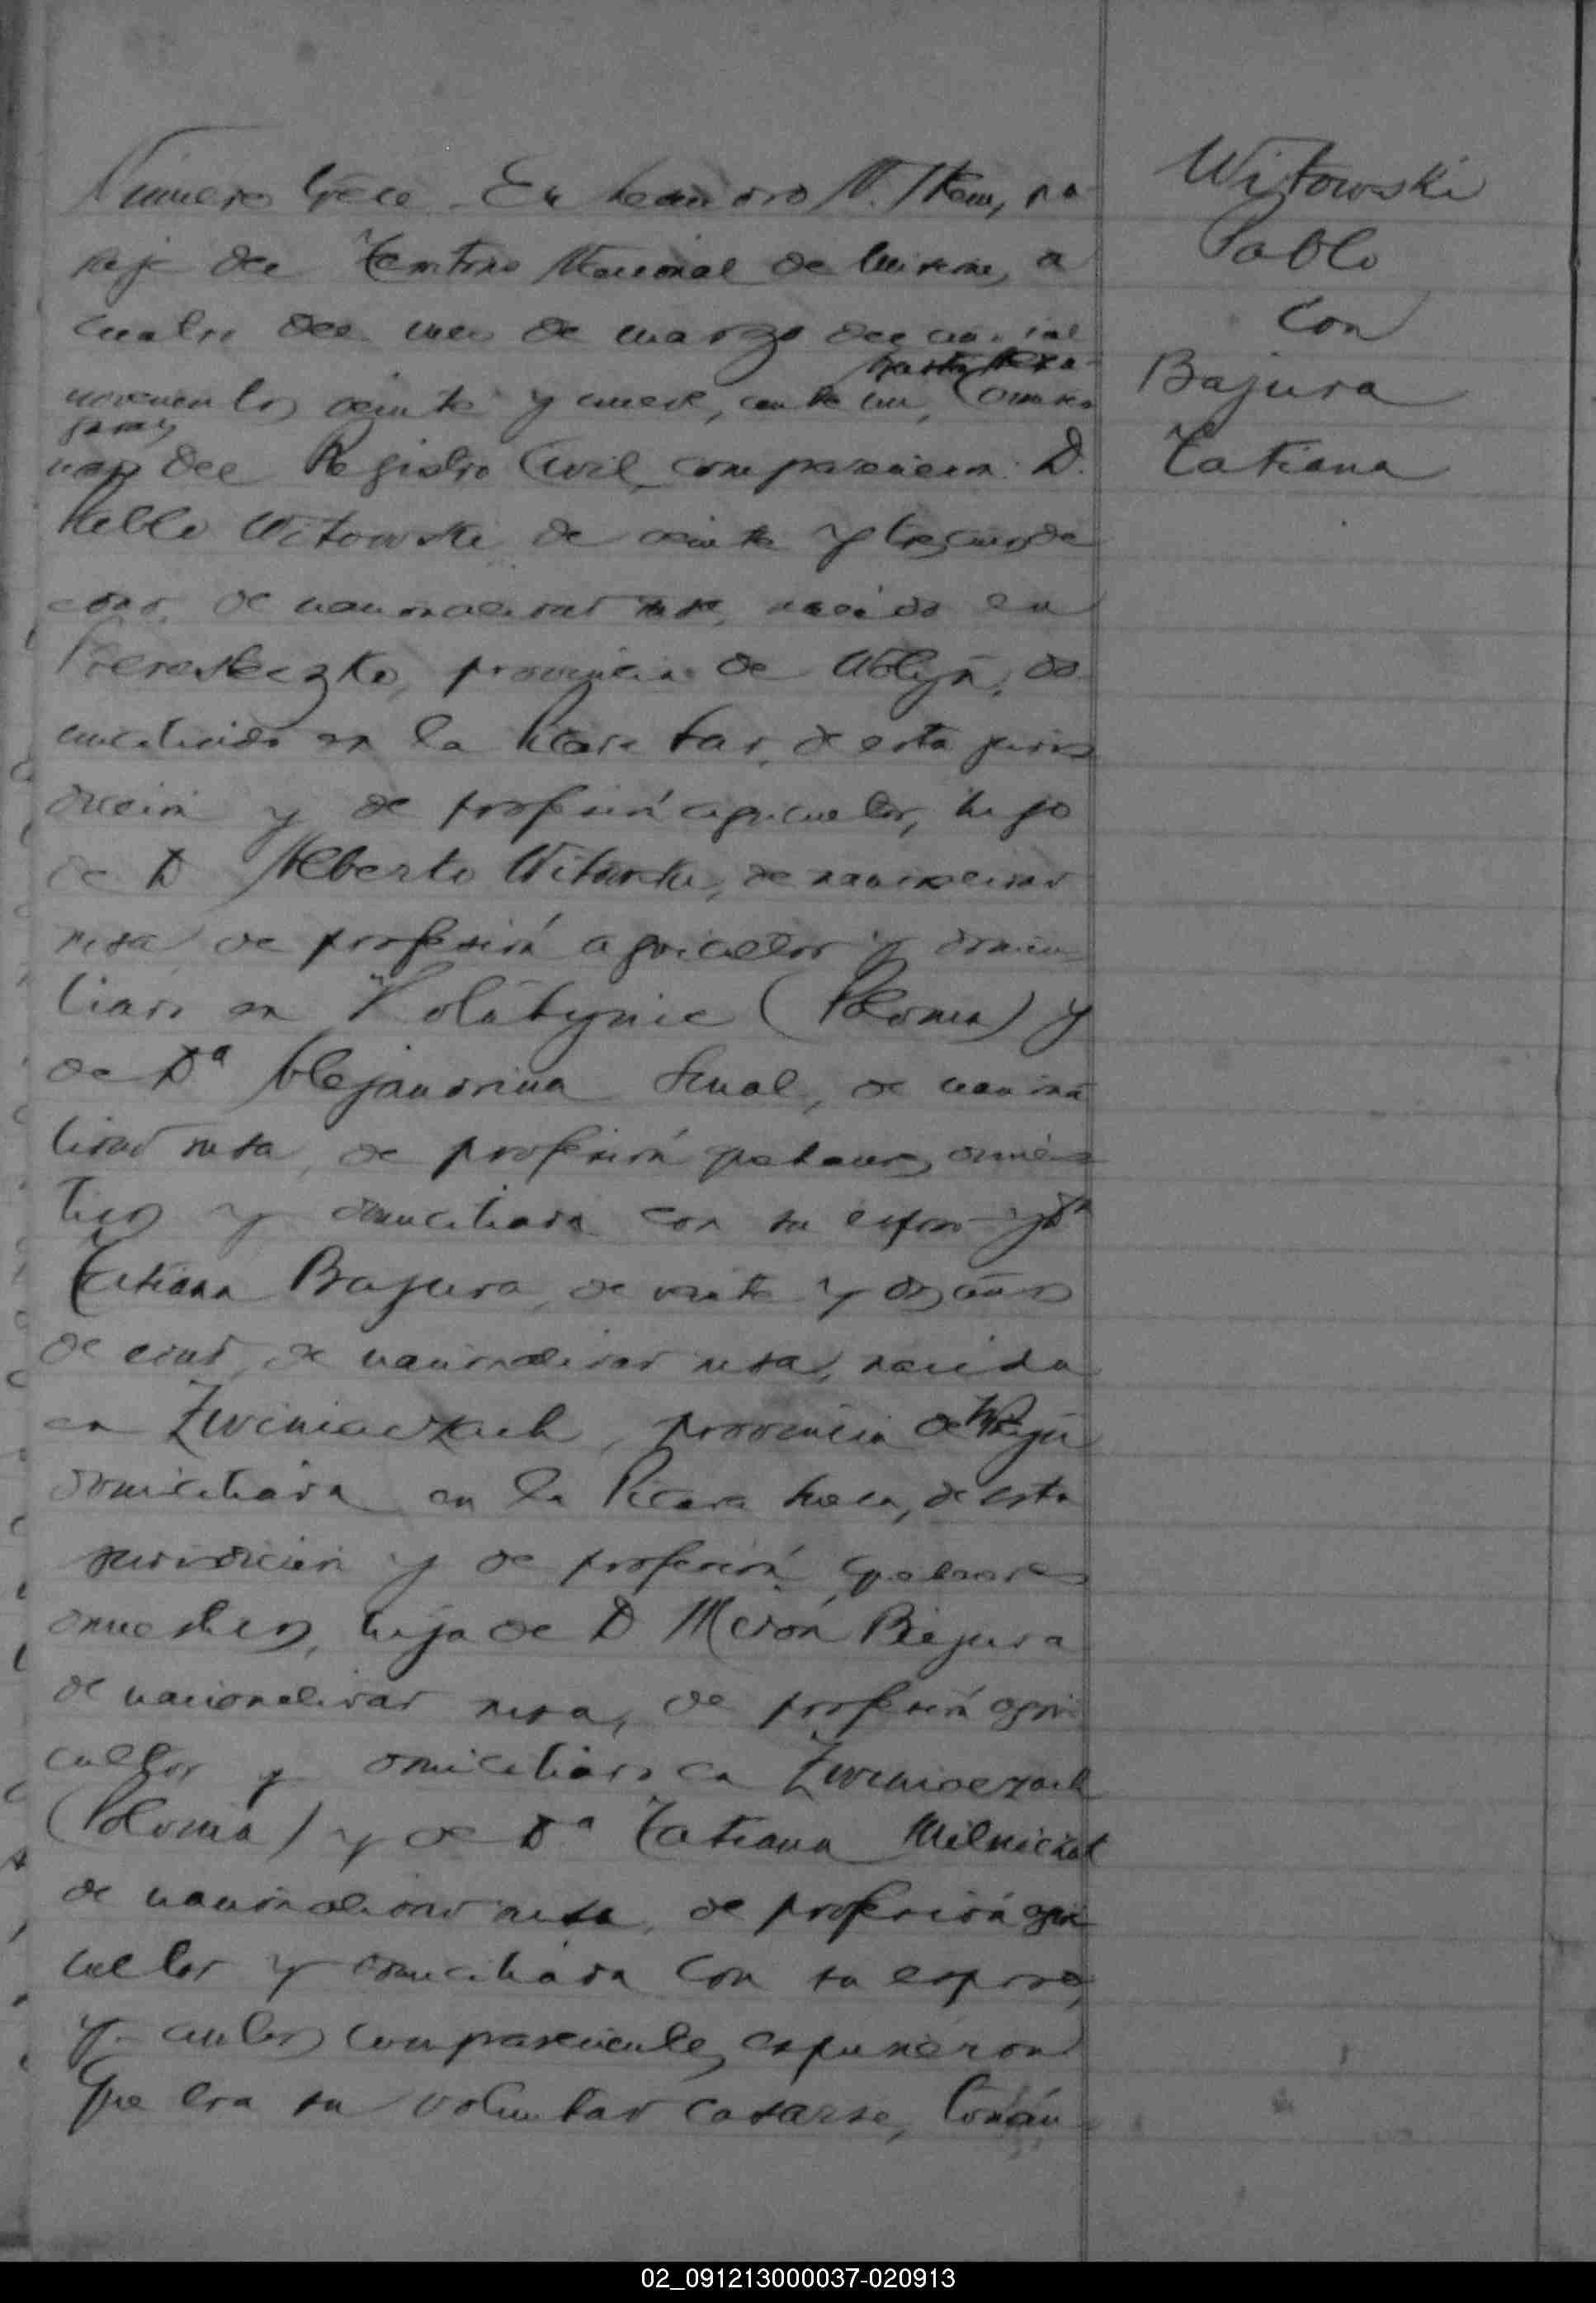 Número trece En Leandro N. Alem, pa-
raje del Territorio Nacional de Misiones, a
cuatro del mes de marzo del año mil
novecientos veinte y nueve, ante mi,
del Registro Civil, comparecieron: D.
Pablo Witowski de veinte y tres años de
edad, de nacionalidad rusa, nacido en
provincia de Wolyn, do-
miciliado en la Picada Sar, de esta juris
dicción y de profesión agricultor, hijo
de D Alberto Witowski, de nacionalidad
rusa de profesión agricultor y domici-
liado en (Polonia) y
de Dª Alejandrina de naciona
lidad rusa, de profesión quehaceres domés-
ticos y domiciliada con su esposo y Dª
Tatiana Bajura, de veinte y dos años
de edad, de nacionalidad rusa, nacida
en Zwiniaczach, provincia de Wolyn
domiciliada en la Picada de esta
jurisdicción y de profesión quehaceres
domesticos, hija de D Mirón Bajura
de nacionalidad rusa, de profesión agri
cultor y domiciliado en Zwiniaczach
(Polonia) y de Dª Tatiana
de nacionalidad rusa, de profesión agri
cultor y domiciliada con su esposo,
y ambos comparecientes expusieron
Que era su voluntad casarse,
Witowski
Pablo
con
Bajura
Tatiana
02_091213000037-020913